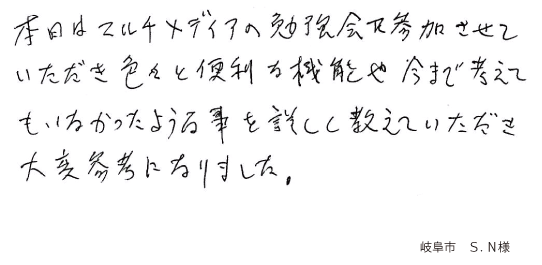 本日はマルチメディアの勉強会に参加させて
いただき色々と便利な機能や今まで考えて
もいなかったような事を詳しく教えていただき
大変参考になりました。
岐阜市　S.N様